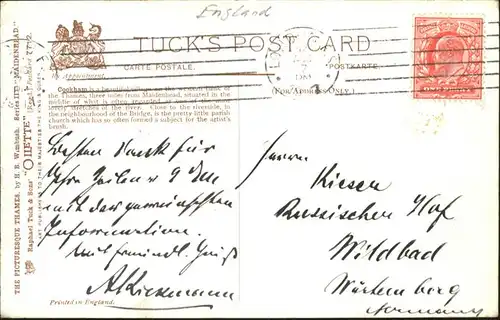 England
TUCK'S POST CARD
By Appointment.
CARTE POSTALE.
POSTKARTE.
(FOR ADDRESS ONLY.)
Cookham is a beautiful
the Thames, three miles from Maidenhead, situated in the
middle of what is often regarded as
stretches of the river. Close to the riverside, in
the neighbourhood of the Bridge, is the pretty little parish
church which has so often formed a subject for the artist's
brush.
THE PICTURESQUE THAMES, by H. B. Wimbush. Series III "MAIDENHEAD."
Raphael Tuck & Sons' "OILETTE" (Regd.) Postcard
ART PUBLISHERS TO THEIR MAJESTIES THE KING & QUEEN.
Besten Dank für
Ihre Zeilen v 9 Dez
mit der gewünschten
Information.
mit freundl. Gruß
Printed in England.
Herrn
Kiesen
Russischer Hof
Wildbad
Würtemberg
Germany